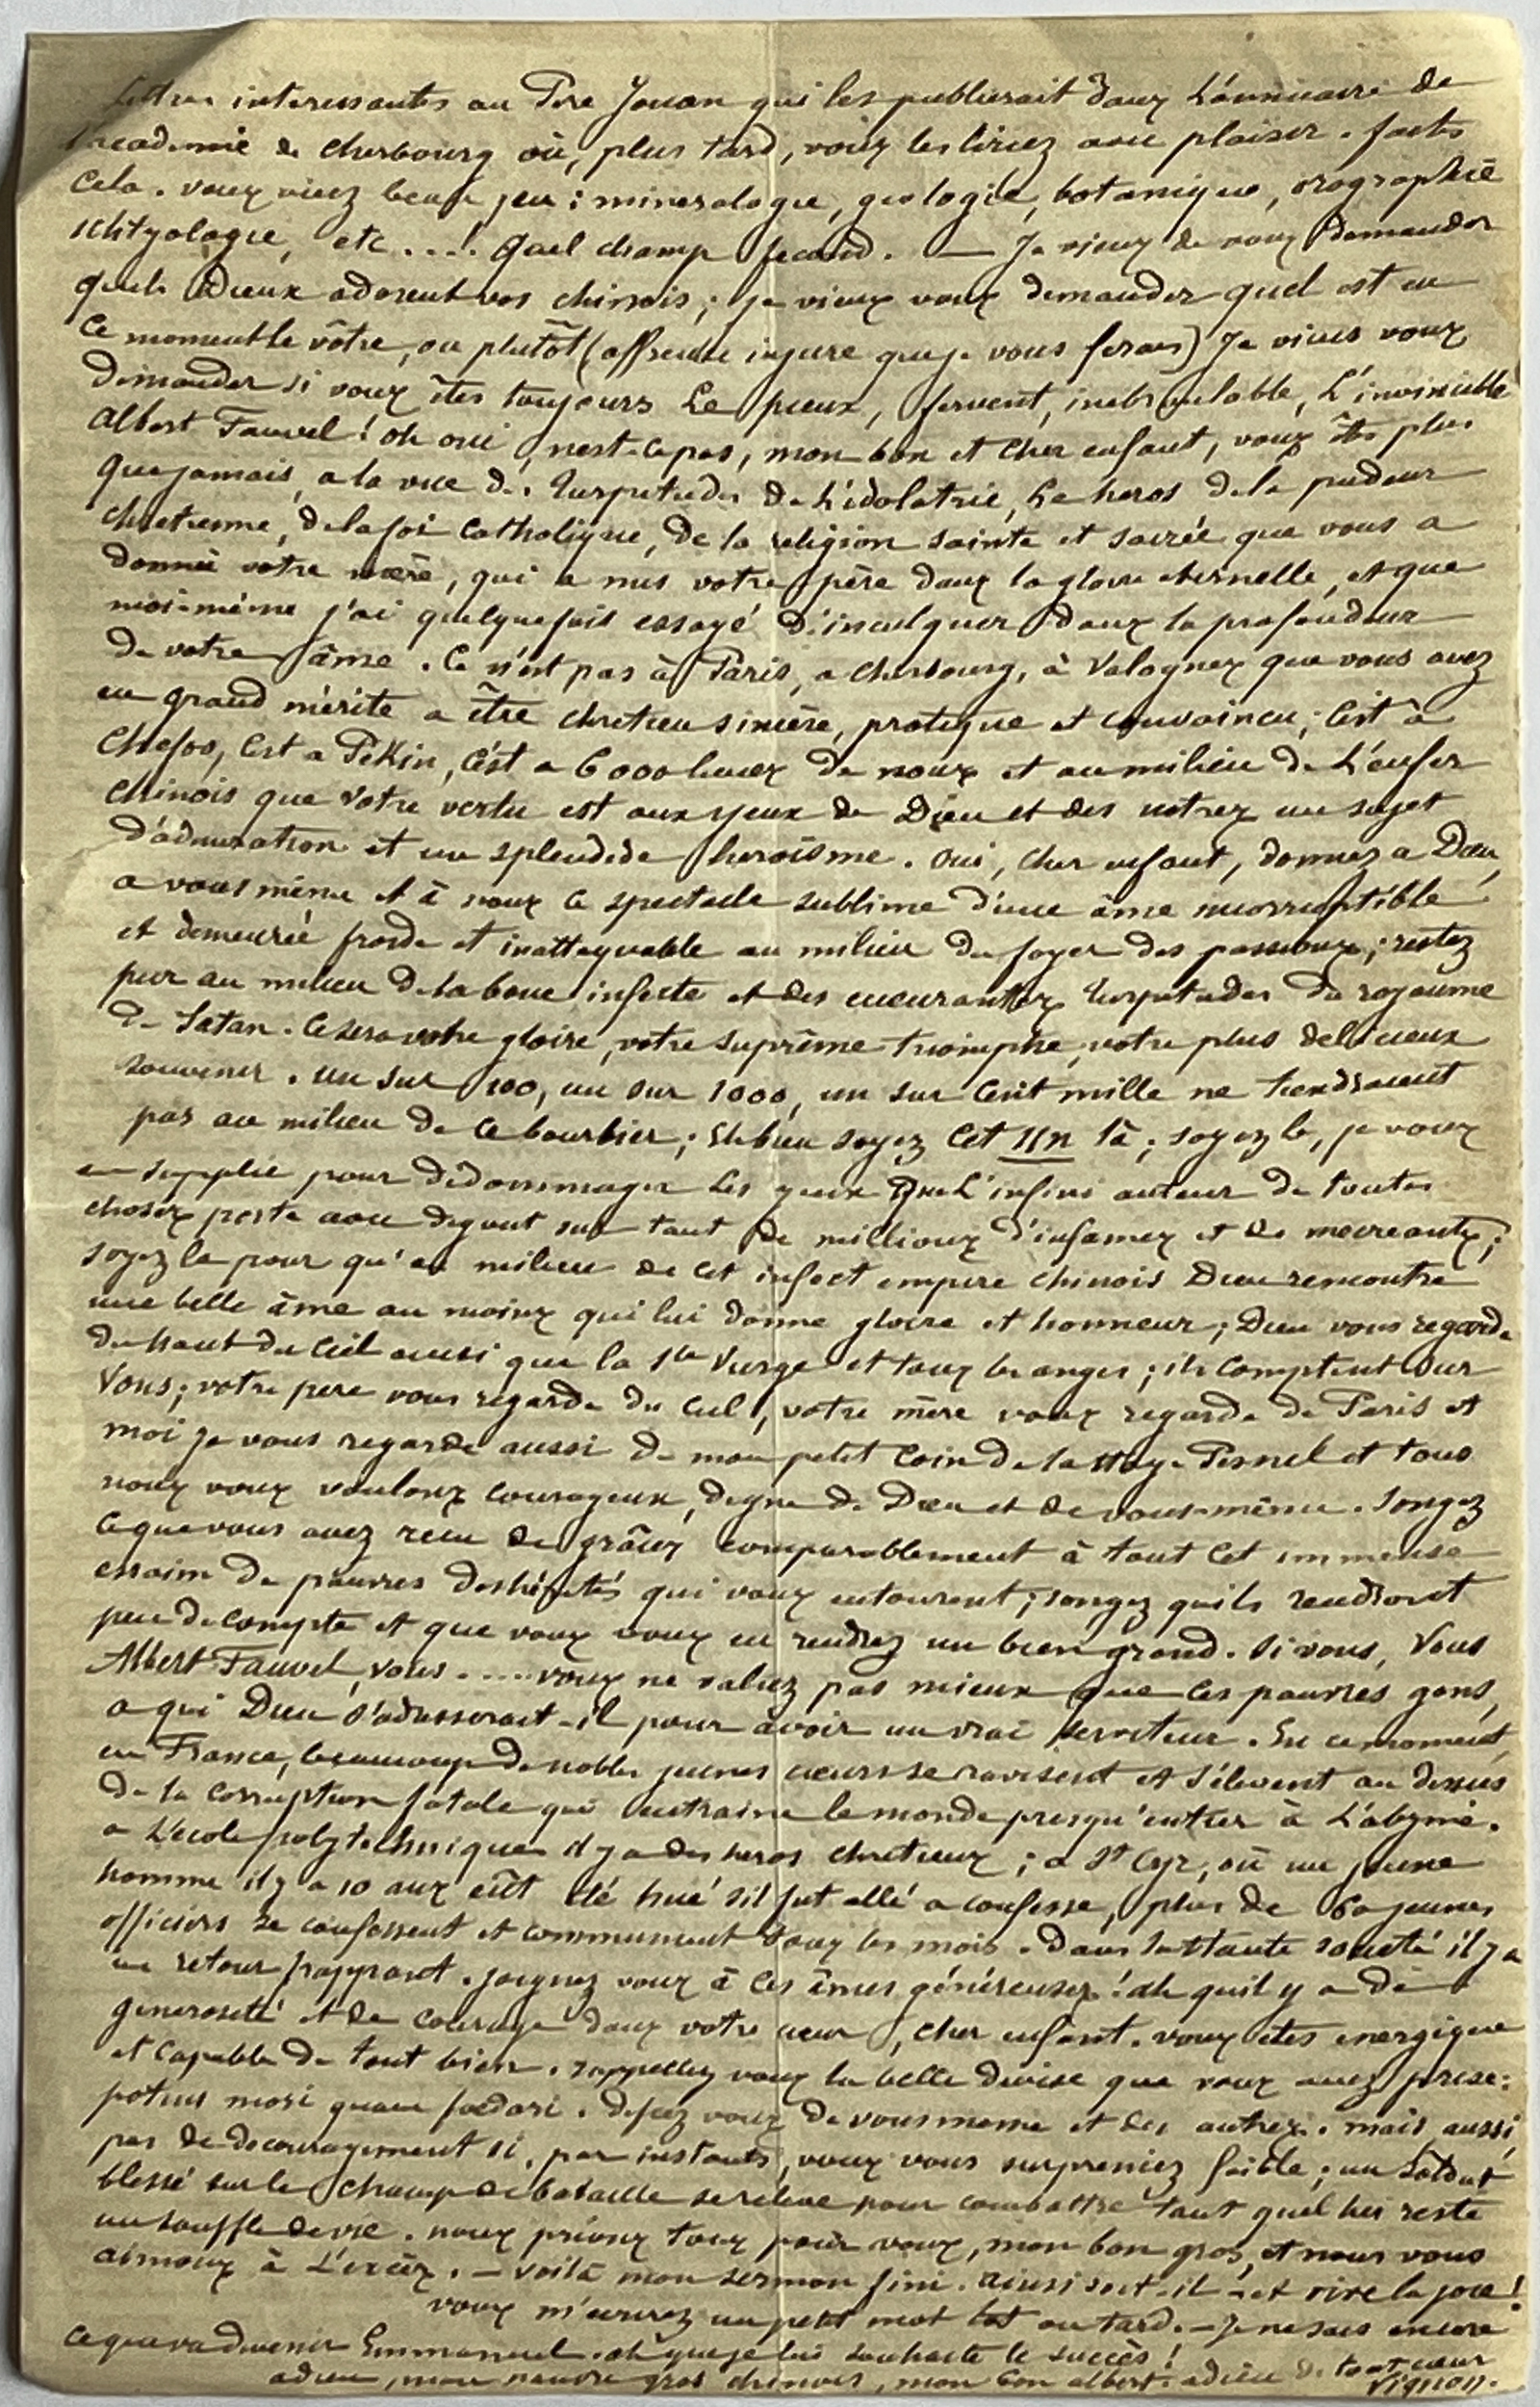 Lettres interessantes au Père Jouan qui les publierait daux L'annuaire de
l'academie de cherbourg où, plus tard, voux les liriez avec plaisir. faites
cela. voux avez beau jeu : mineralogie, geologie, botanique, orographie
ichtyologie, etc....! quel champ fecond. — Je vieux de voux demander
quels Dieux adorent vos chinois ; je vieux voux demander quel est en
ce moment le vôtre, ou plutôt (affreuse injure que je vous ferais) Je viens voux
demander si voux êtes toujours Le pieux, fervent, inebranlable, L'invincible
Albert Fauvel ! oh oui, nest-ce pas, mon bon et cher enfant, voux êtes plus
que jamais, a la vue des turpitudes de L'idolatrie, Le heros de la pudeur
chretienne, de la foi catholique, de la religion sainte et sacrée que vous a
donnée votre mère, qui a mis votre père daux la gloire eternelle, et que
moi-même j'ai quelquefois essayé d'inculquer daux la profondeur
de votre âme. Ce n'est pas à Paris, a cherbourg, à Valognex que vous avez
un grand mérite a être chretien sincère, pratique et convaincu ; C'est à
Chefoo, C'est a Pékin, c'est a 6000 lieuex de noux et au milieu de L'enfer
chinois que votre vertu est aux yeux de Dieu et des notrex un sujet
d'admiration et un splendide heroïsme. oui, cher enfant, donnez a Dieu,
a vous même et à noux Ce spectacle sublime d'une âme incorruptible
et demeurée froide et inattaquable au milieu du foyer des passionx ; restez
pur au milieu de la boue infecte et des ecœurantex turpitudes du royaume
de Satan. Ce sera votre gloire, votre suprême triomphe, votre plus delicieux
souvenir. un sur 100, un sur 1000, un sur cent mille ne tiendraient
pas au milieu de ce bourbier ; Eh bien soyez Cet Un là ; soyez le, je voux
en supplie pour dédommager Les yeux que L'infini auteur de toutes
chosex porte avec degout sur tant de millioux d'infamex et de mecreantx ;
soyez le pour qu'au milieu de cet infect empire chinois Dieu rencontre
une belle âme au moinx qui lui donne gloire et honneur ; Dieu vous regarde
du haut du Ciel aussi que la Ste Vierge et toux les anges ; ils comptent sur
Vous ; votre pere vous regarde du Ciel, votre mère voux regarde de Paris et
moi je vous regarde aussi de mon petit Coin de la Haye-Pesnel et tous
noux voux vouloux courageux, digne de Dieu et de vous-même. Songez
Ce que vous avez recu de grâcex comparablement à tout Cet immense
essaim de pauvres deshérités qui voux entourent ; songez quils rendront
peu de compte et que voux voux en rendrez un bien grand. Si vous, Vous
Albert Fauvel, vous .... voux ne valiez pas mieux que Ces pauvres gens,
a qui Dieu s'adresserait-il pour avoir un vrai serviteur. En ce moment,
en France, beaucoup de nobles jeunes cœurs se ravisent et s'élevent au dessus
de la corruption fatale qui entraine le monde presqu'entier à L'abyme.
a L'école polytechnique il y a des heros chretienx ; a St Cyr, où un jeune
homme il y a 10 aux eût été hué s'il fut allé a confesse, plus de 60 jeunes
officiers se confessent et communient toux les mois. Dans la Haute societé il y a
un retour frappant. joignez voux à Ces âmes généreusex ! ah quil y a de
generosité et de courage daux votre cœur, cher enfant. voux etes energique
et capable de tout bien. rappellez voux la belle devise que voux avez prise :
potius mori quam fœdari. defiez voux de vous meme et des autrex. mais aussi,
pas de decouragement si, par instants, voux vous surpreniez faible ; un soldat
blessé sur le champ de bataille se releve pour combattre tant quel lui reste
un souffle de vie. noux prioux toux pour voux, mon bon gros, et nous vous
aimoux à L'excèx. — Voilà mon sermon fini. ainsi soit-il — et vive la joie !
voux m'ecrirez un petit mot tot ou tard. — Je ne sais encore
Ce que va devenir Emmanuel. oh que je lui souhaite le succès !
adieu, mon pauvre gros chinois, mon bon albert. adieu de tout cœur
Vignon.